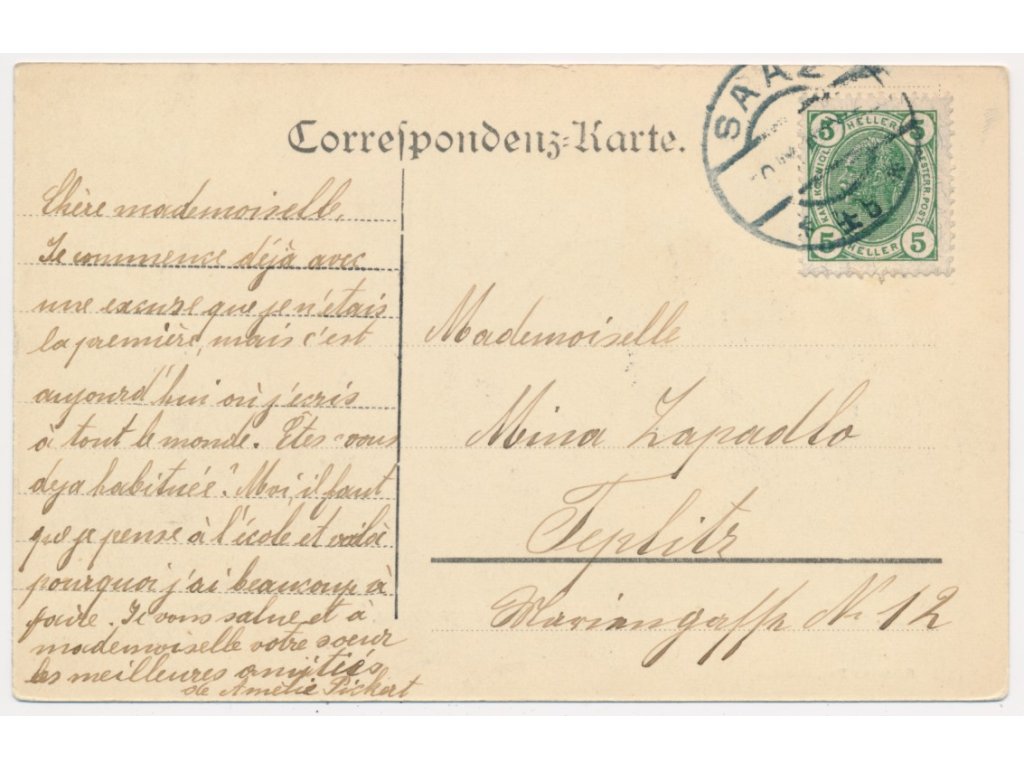 Correspondenz-Karte.
SAAZ
5 HELLER 5
KAIS. KOENIGL. OESTERR. POST.
5 HELLER 5
Chère mademoiselle,
Je commence déjà avec
une excuse que je n'étais
la première, mais c'est
aujourd'hui où j'écris
à tout le monde. Êtes-vous
deja habituée? Moi, il faut
que je pense à l'école et voilà
pourquoi j'ai beaucoup à
faire. Je vous salue et à
mademoiselle votre soeur
les meilleures amitiés
de Amélie Pickert
Mademoiselle
Mina Zapadlo
Teplitz
Mariengasse N. 12